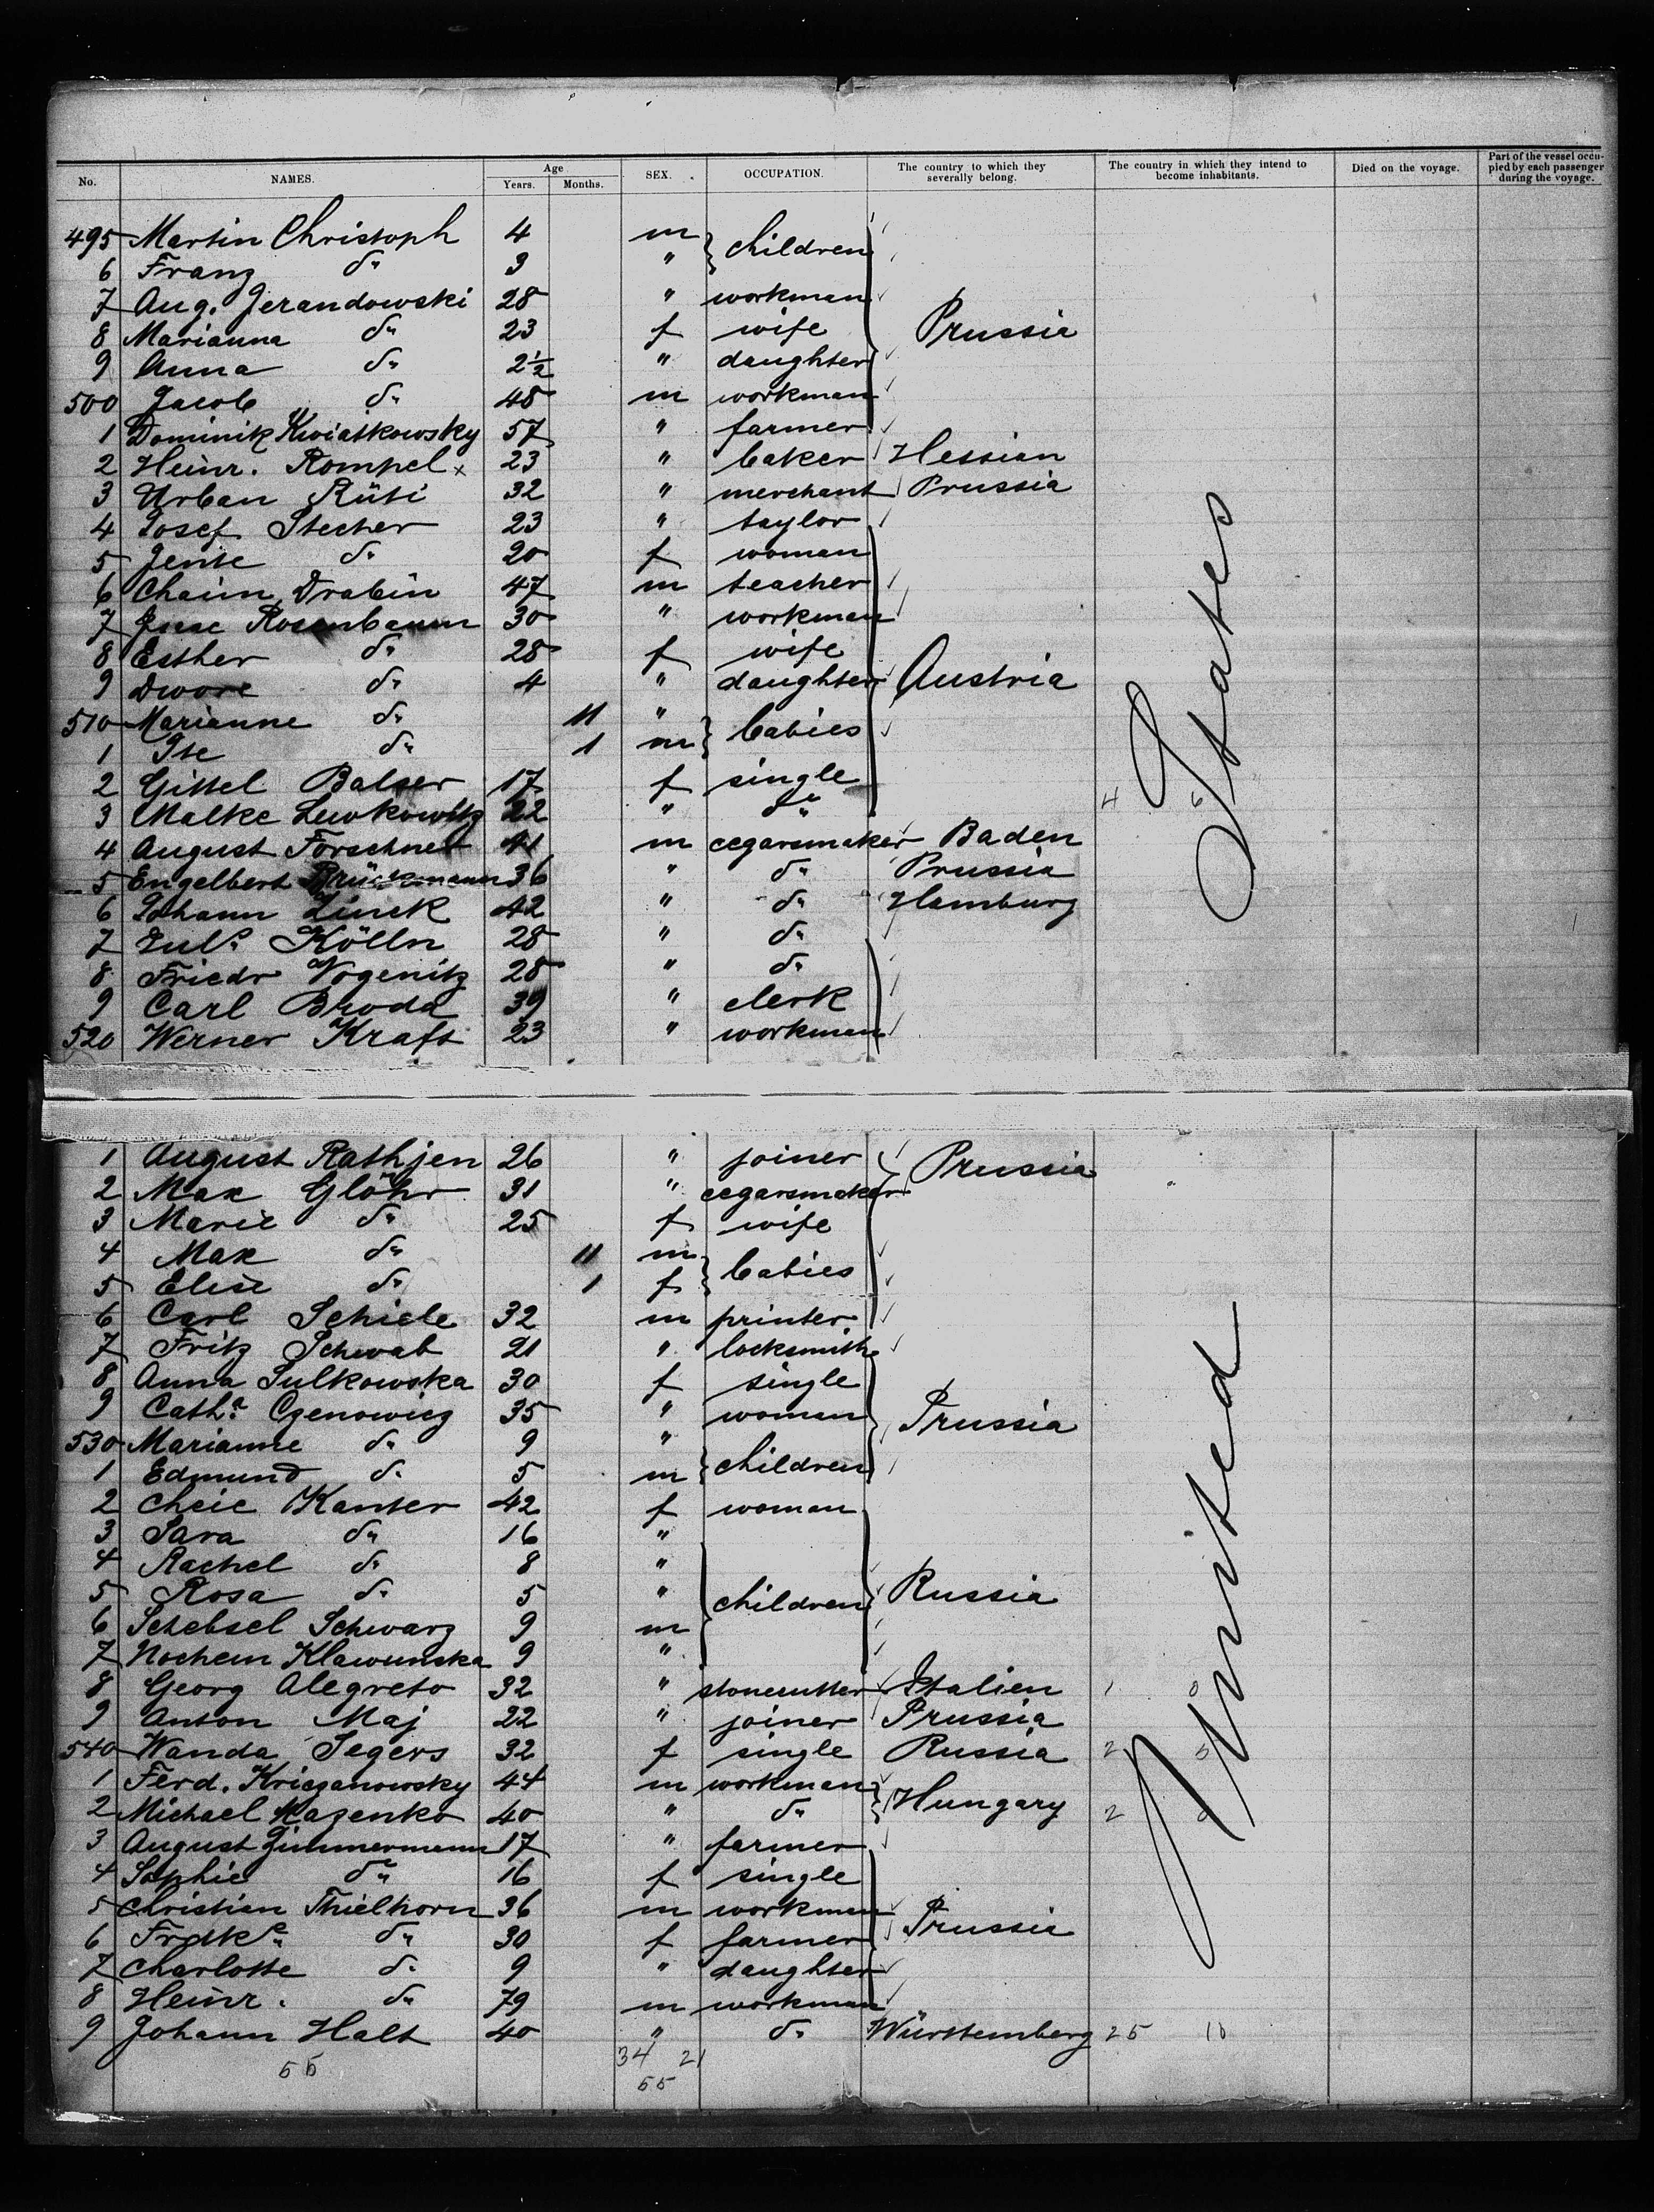 No. NAMES. Age Years. Months. SEX. OCCUPATION. The country to which they severally belong. The country in which they intend to become inhabitants. Died on the voyage. Part of the vessel occupied by each passenger during the voyage.
495 Martin Christoph 4 m children
6 Franz do 3 "
7 Aug. Jerandowski 28 " workman
8 Marianna do 23 f wife Prussia
9 Anna do 2½ " daughter
500 Jacob do 48 m workman
1 Dominik Kwiatkowsky 57 " farmer
2 Heinr. Rompel x 23 " baker Hessian
3 Urban Rüti 32 " merchant Prussia
4 Josef Stecher 23 " taylor
5 Jente do 20 f woman
6 Chaim Drabin 47 m teacher
7 Rosenbaum 30 " workman
8 Esther do 28 f wife
9 Dwore do 4 " daughter Austria
510 Marianne do 11 " babies
1 do 1 m
2 Gittel Balser 17 f single
3 Malke Lewkowitz 22 " do 4 6
4 August Forschner 41 m cegarsmaker Baden
5 Engelbert Brückmann 36 " do Prussia
6 Johann Zinck 42 " do Hamburg
7 Juls Kölln 28 " do
8 Friedr Wogenitz 28 " do
9 Carl Broda 39 " clerk
520 Werner Kraft 23 " workman
States
1 August Rathjen 26 " joiner Prussia
2 Max Glöhr 31 " cegarsmaker
3 Marie do 25 f wife
4 Max do 11 m babies
5 Elise do 1 f
6 Carl Schiele 32 m printer
7 Fritz Schwab 21 " locksmith
8 Anna Sulkowska 30 f single
9 Cath.a Czenowicz 35 " woman Prussia
530 Marianne do 9 " children
1 Edmund do 5 m
2 Cheie Kanter 42 f woman
3 Sara do 16 "
4 Rachel do 8 "
5 Rosa do 5 " children Russia
6 Schebsel Schwarz 9 m
7 Nochem Klawunska 9 "
8 Georg Alegreto 32 " stonecutter Italien 1 0
9 Anton Maj 22 " joiner Prussia
540 Wanda Segers 32 f single Russia 2 5
1 Ferd. Kriezanowsky 44 m workman Hungary
2 Michael Mazenko 40 " do 2
3 August Zimmermann 17 " farmer
4 Sophie do 16 f single
5 Christian Thielhorn 36 m workman Prussia
6 Frdke do 30 f farmer
7 Charlotte do 9 " daughter
8 Heinr. do 79 m workman
9 Johann Halt 40 " do Württemberg 25 10
United
55 34 21
55